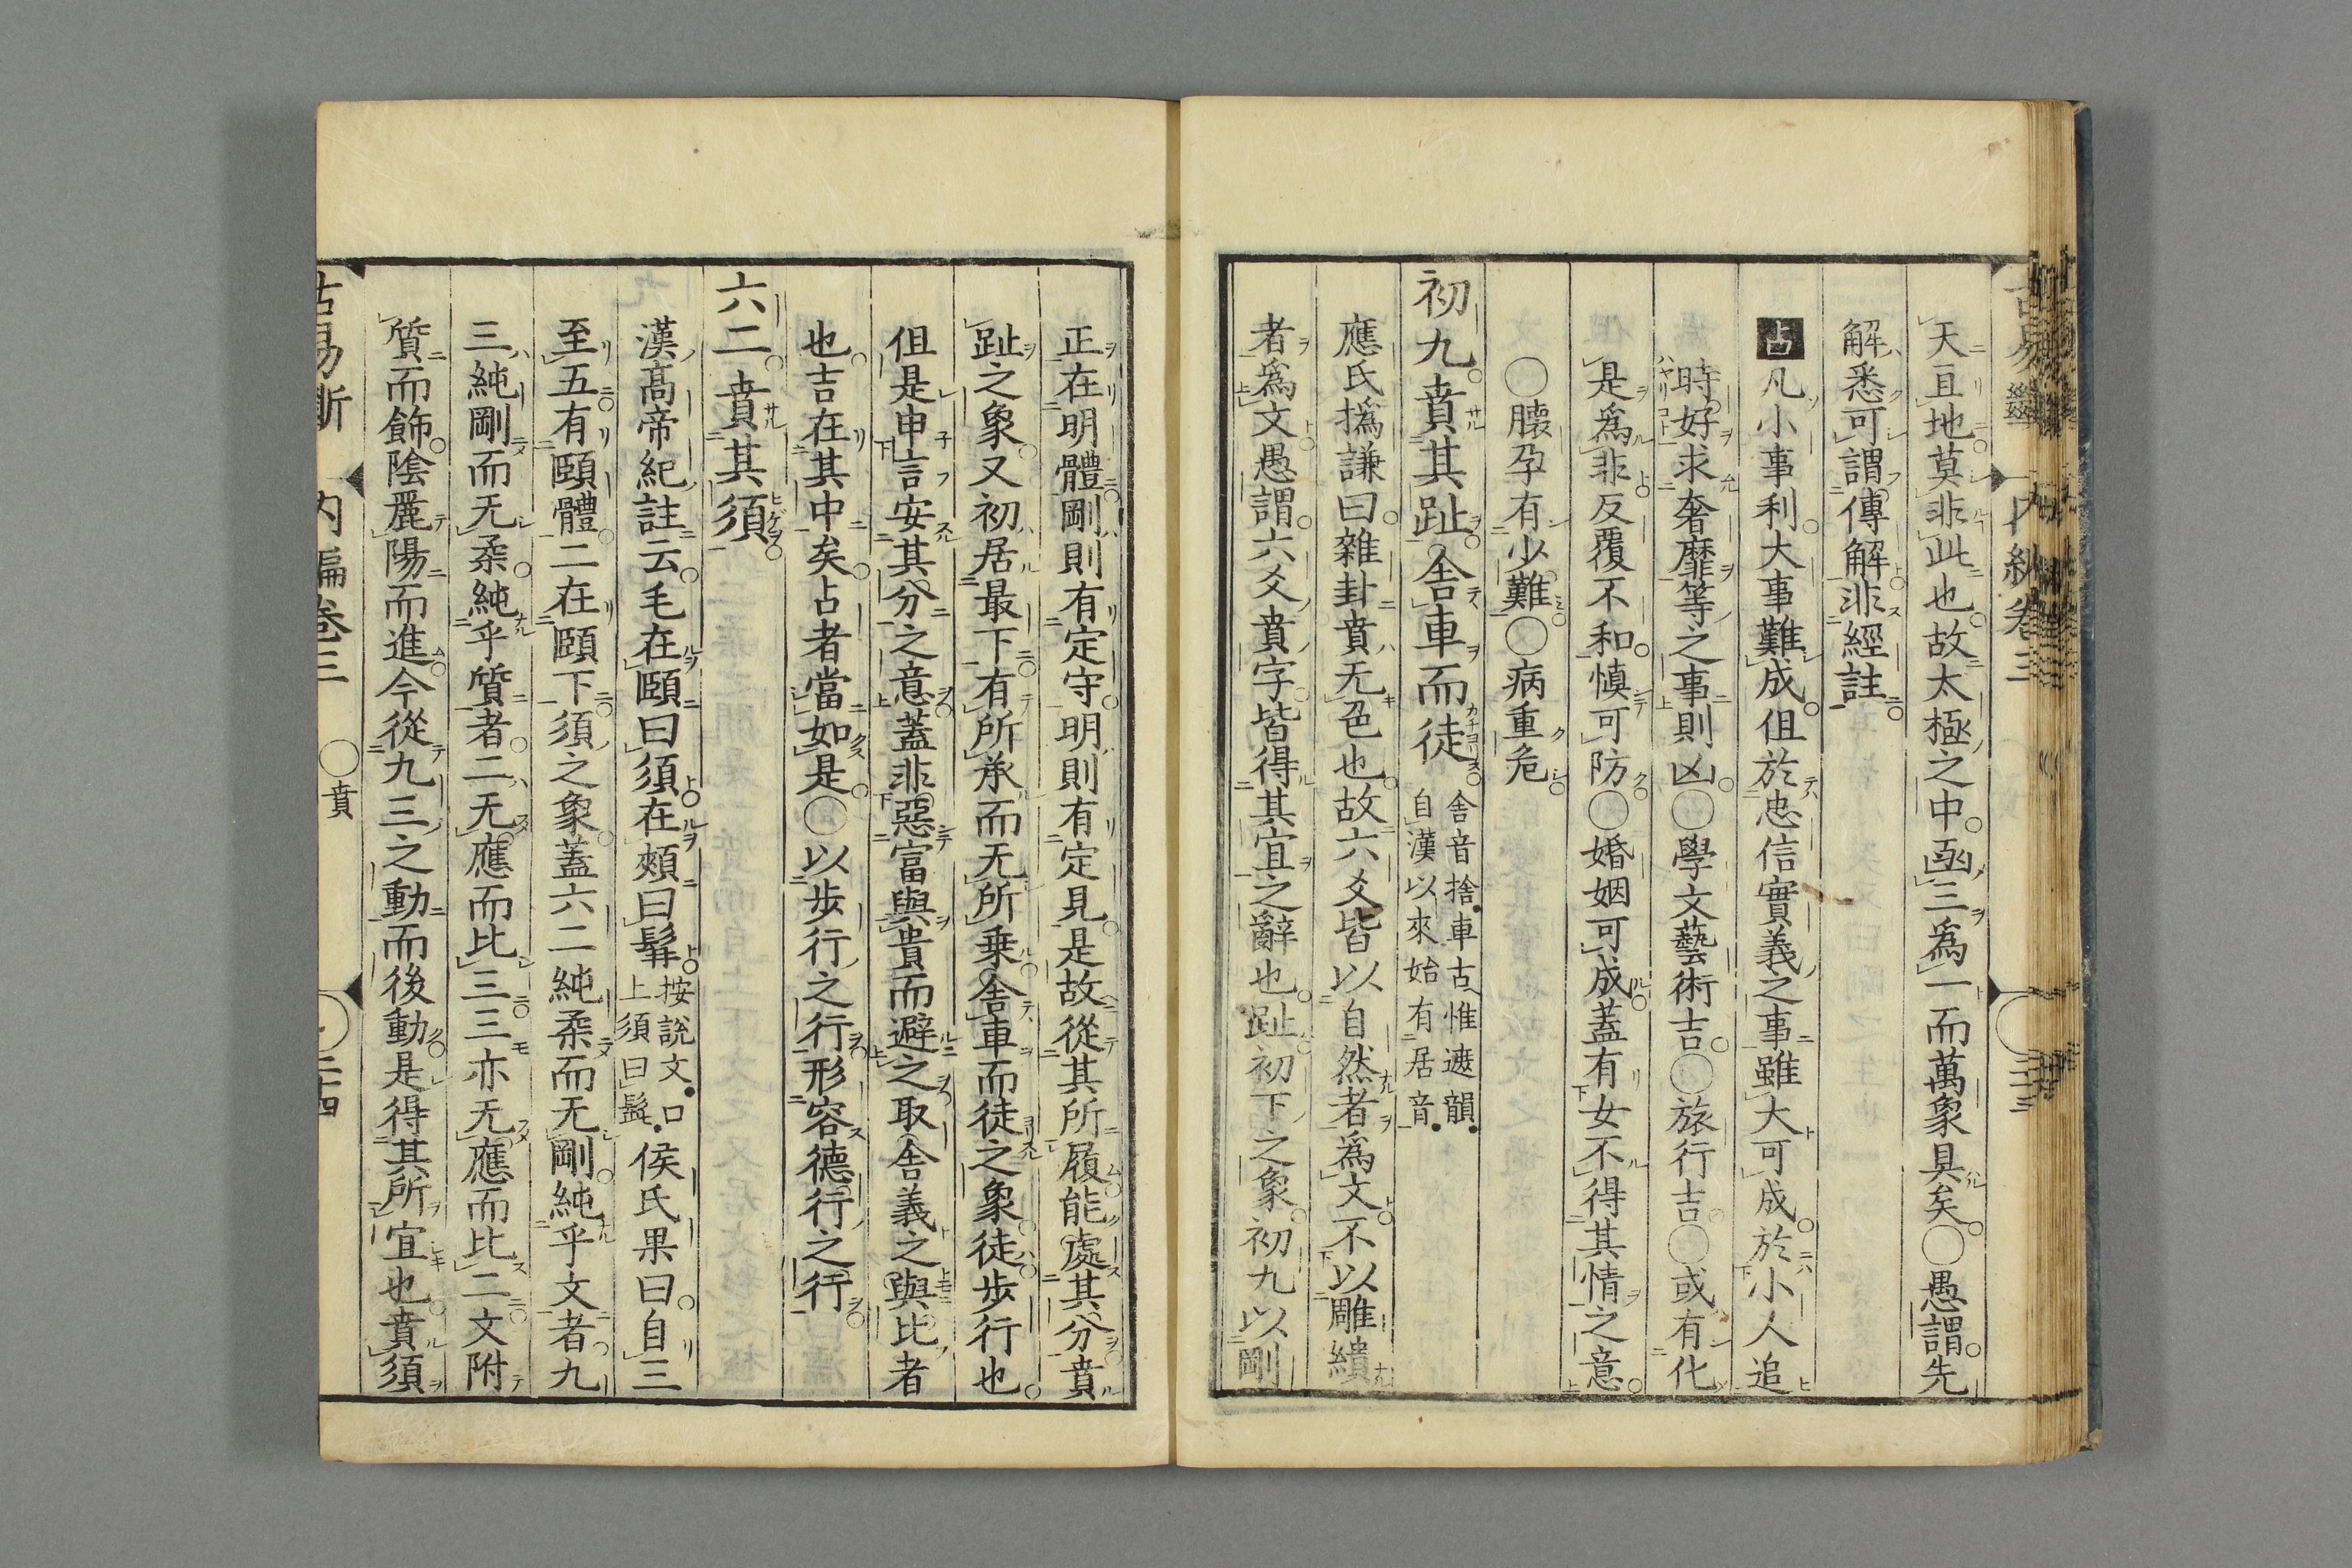 天且地莫非此也故太極之中函三爲一而萬象具矣〇愚謂先
解悉可謂傳解非經註
占凡小事利大事難成但於忠信實義之事雖大可成於小人追
時好求奢靡等之事則凶〇學文藝術吉〇旅行吉〇或有化
是爲非反覆不和愼可防〇婚姻可成蓋有女不得其情之意
〇懐孕有少難〇病重危
初九賁其趾舎車而徒舎音捨車古惟遮韻
自漢以來始有居音
應氏撝謙曰雜卦賁无色也故六爻皆以自然者爲文不以雕繢
者爲文愚謂六爻賁字皆得其宜之辭也趾初下之象初九以剛
正在明體剛則有定守明則有定見是故從其所履能處其分賁
趾之象又初居最下有所承而无所乗舎車而徒之象徒步行也
但是申言安其分之意蓋非惡富與貴而避之取舎義之與比者
也吉在其中矣占者當如是〇以步行之行形容德行之行
六二賁其須
漢髙帝紀註云毛在頤曰須在頰曰髯按説文口
上須曰髭侯氏果曰自三
至五有頤體二在頤下須之象蓋六二純柔而无剛純乎文者九
三純剛而无柔純乎質者二无應而比三三亦无應而比二文附
質而飾陰麗陽而進今從九三之動而後動是得其所宜也賁須
内編卷三 〇賁 二十四